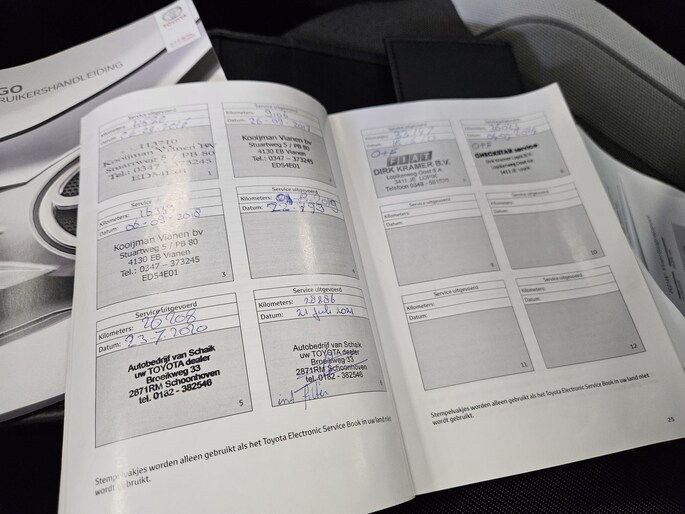 GO
RUIKERSHANDLEIDING
Service uitgevoerd
Kilometers:
Datum:
Kooijman Vianen bv
Stuartweg 5 / PB 80
4130 EB Vianen
Tel.: 0347 - 373245
ED54E01
1
Service uitgevoerd
Kilometers:
Datum:
Kooijman Vianen bv
Stuartweg 5 / PB 80
4130 EB Vianen
Tel.: 0347 - 373245
ED54E01
2
Service uitgevoerd
Kilometers:
Datum:
Kooijman Vianen bv
Stuartweg 5 / PB 80
4130 EB Vianen
Tel.: 0347 - 373245
ED54E01
3
Service uitgevoerd
Kilometers:
Datum:
4
Service uitgevoerd
Kilometers: 26708
Datum: 23-7-2020
Autobedrijf van Schaik
uw TOYOTA dealer
Broeikweg 33
2871RM Schoonhoven
tel. 0182 - 382546
5
Service uitgevoerd
Kilometers: 28886
Datum: 21 juli 2021
Autobedrijf van Schaik
uw TOYOTA dealer
Broeikweg 33
2871RM Schoonhoven
tel. 0182 - 382546
Stempelvakjes worden alleen gebruikt als het Toyota Electronic Service Book in uw land niet
wordt gebruikt.
Service uitgevoerd
Kilometers:
Datum:
O+F
FIAT
DIRK KRAMER B.V.
Service uitgevoerd
Kilometers:
Datum:
O+F
CHECKSTAR service
Service uitgevoerd
Kilometers:
Datum:
9
Service uitgevoerd
Kilometers:
Datum:
10
Service uitgevoerd
Kilometers:
Datum:
11
Service uitgevoerd
Kilometers:
Datum:
12
Stempelvakjes worden alleen gebruikt als het Toyota Electronic Service Book in uw land niet
wordt gebruikt.
25